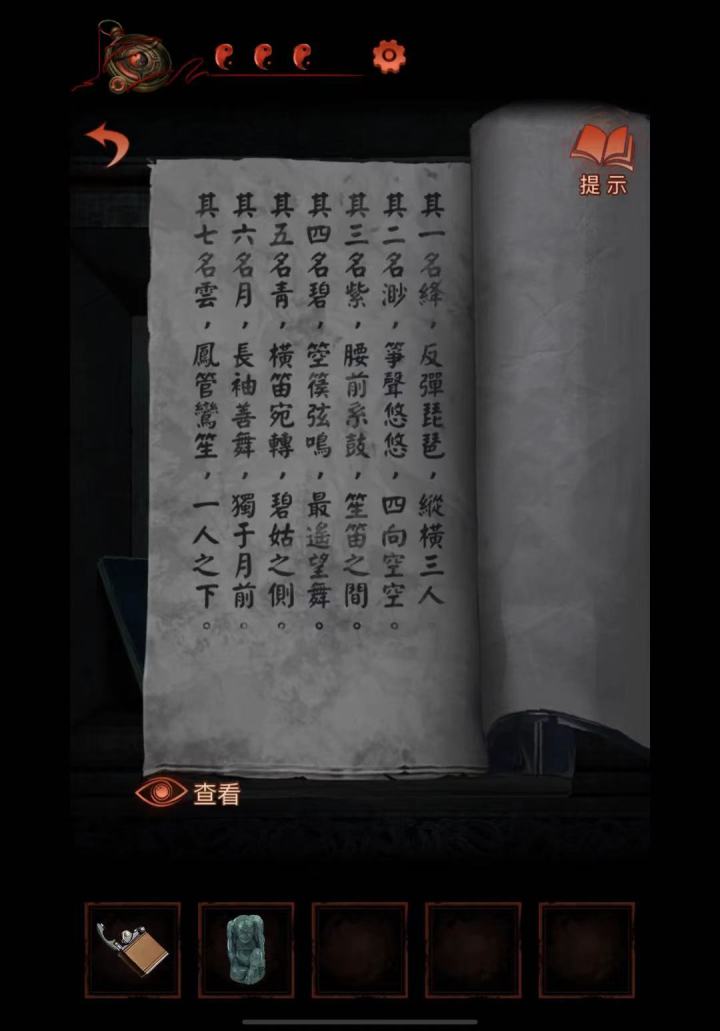 提示
其一名絳，反彈琵琶，縱橫三人。
其二名渺，箏聲悠悠，四向空空。
其三名紫，腰前系鼓，笙笛之間。
其四名碧，箜篌弦鳴，最遥望舞。
其五名青，橫笛宛轉，碧姑之側。
其六名月，長袖善舞，獨于月前。
其七名雲，鳳管鸞笙，一人之下。
查看